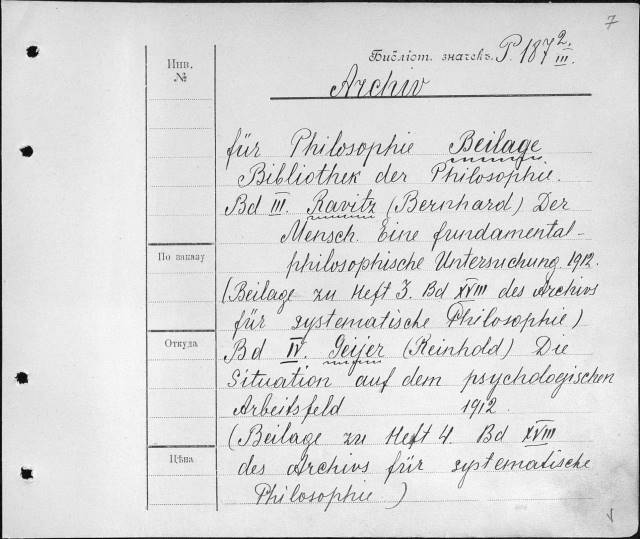 7
Инв. №
Библіот. значекъ. P. 187 2. III.
Archiv
für Philosophie Beilage
Bibliothek der Philosophie.
Bd III. Ravitz (Bernhard) Der
Mensch. Eine fundamental-
philosophische Untersuchung. 1912.
По заказу
(Beilage zu Heft 3. Bd XVIII des Archivs
für systematische Philosophie)
Откуда
Bd IV. Geijer (Reinhold) Die
Situation auf dem psychologischen
Arbeitsfeld 1912.
(Beilage zu Heft 4. Bd XVIII
Цѣна
des Archivs für systematische
Philosophie)